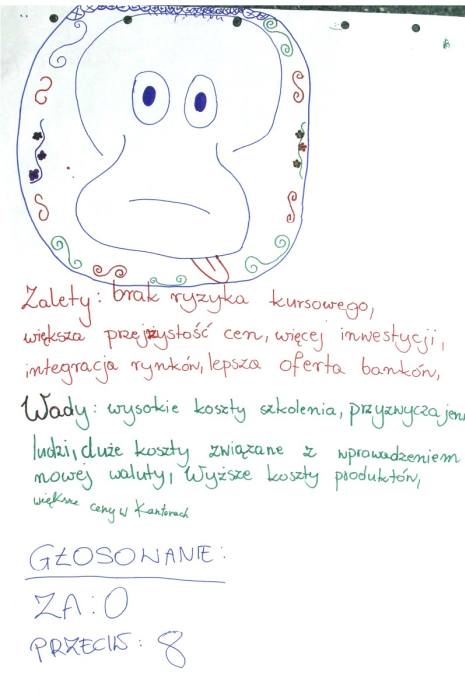 Zalety: brak ryzyka kursowego,
większa przejżystość cen, więcej inwestycji,
integracja rynków, lepsza oferta banków,
Wady: wysokie koszty szkolenia, przyzwyczajeni
ludzi, duże koszty związane z wprowadzeniem
nowej waluty, Wyższe koszty produktów,
większe ceny w Kantorach
GŁOSOWANE:
ZA: 0
PRZECIW: 8